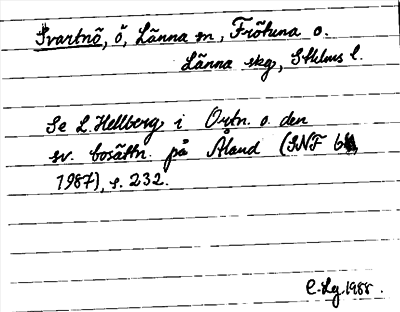 Svartnö, ö, Länna sn, Frötuna o.
Länna skg, Sthlms l.
Se L. Hellberg i Ortn. o. den
sv. bosättn. på Åland (SNF 68,
1987), s. 232.
C. Lg. 1988.